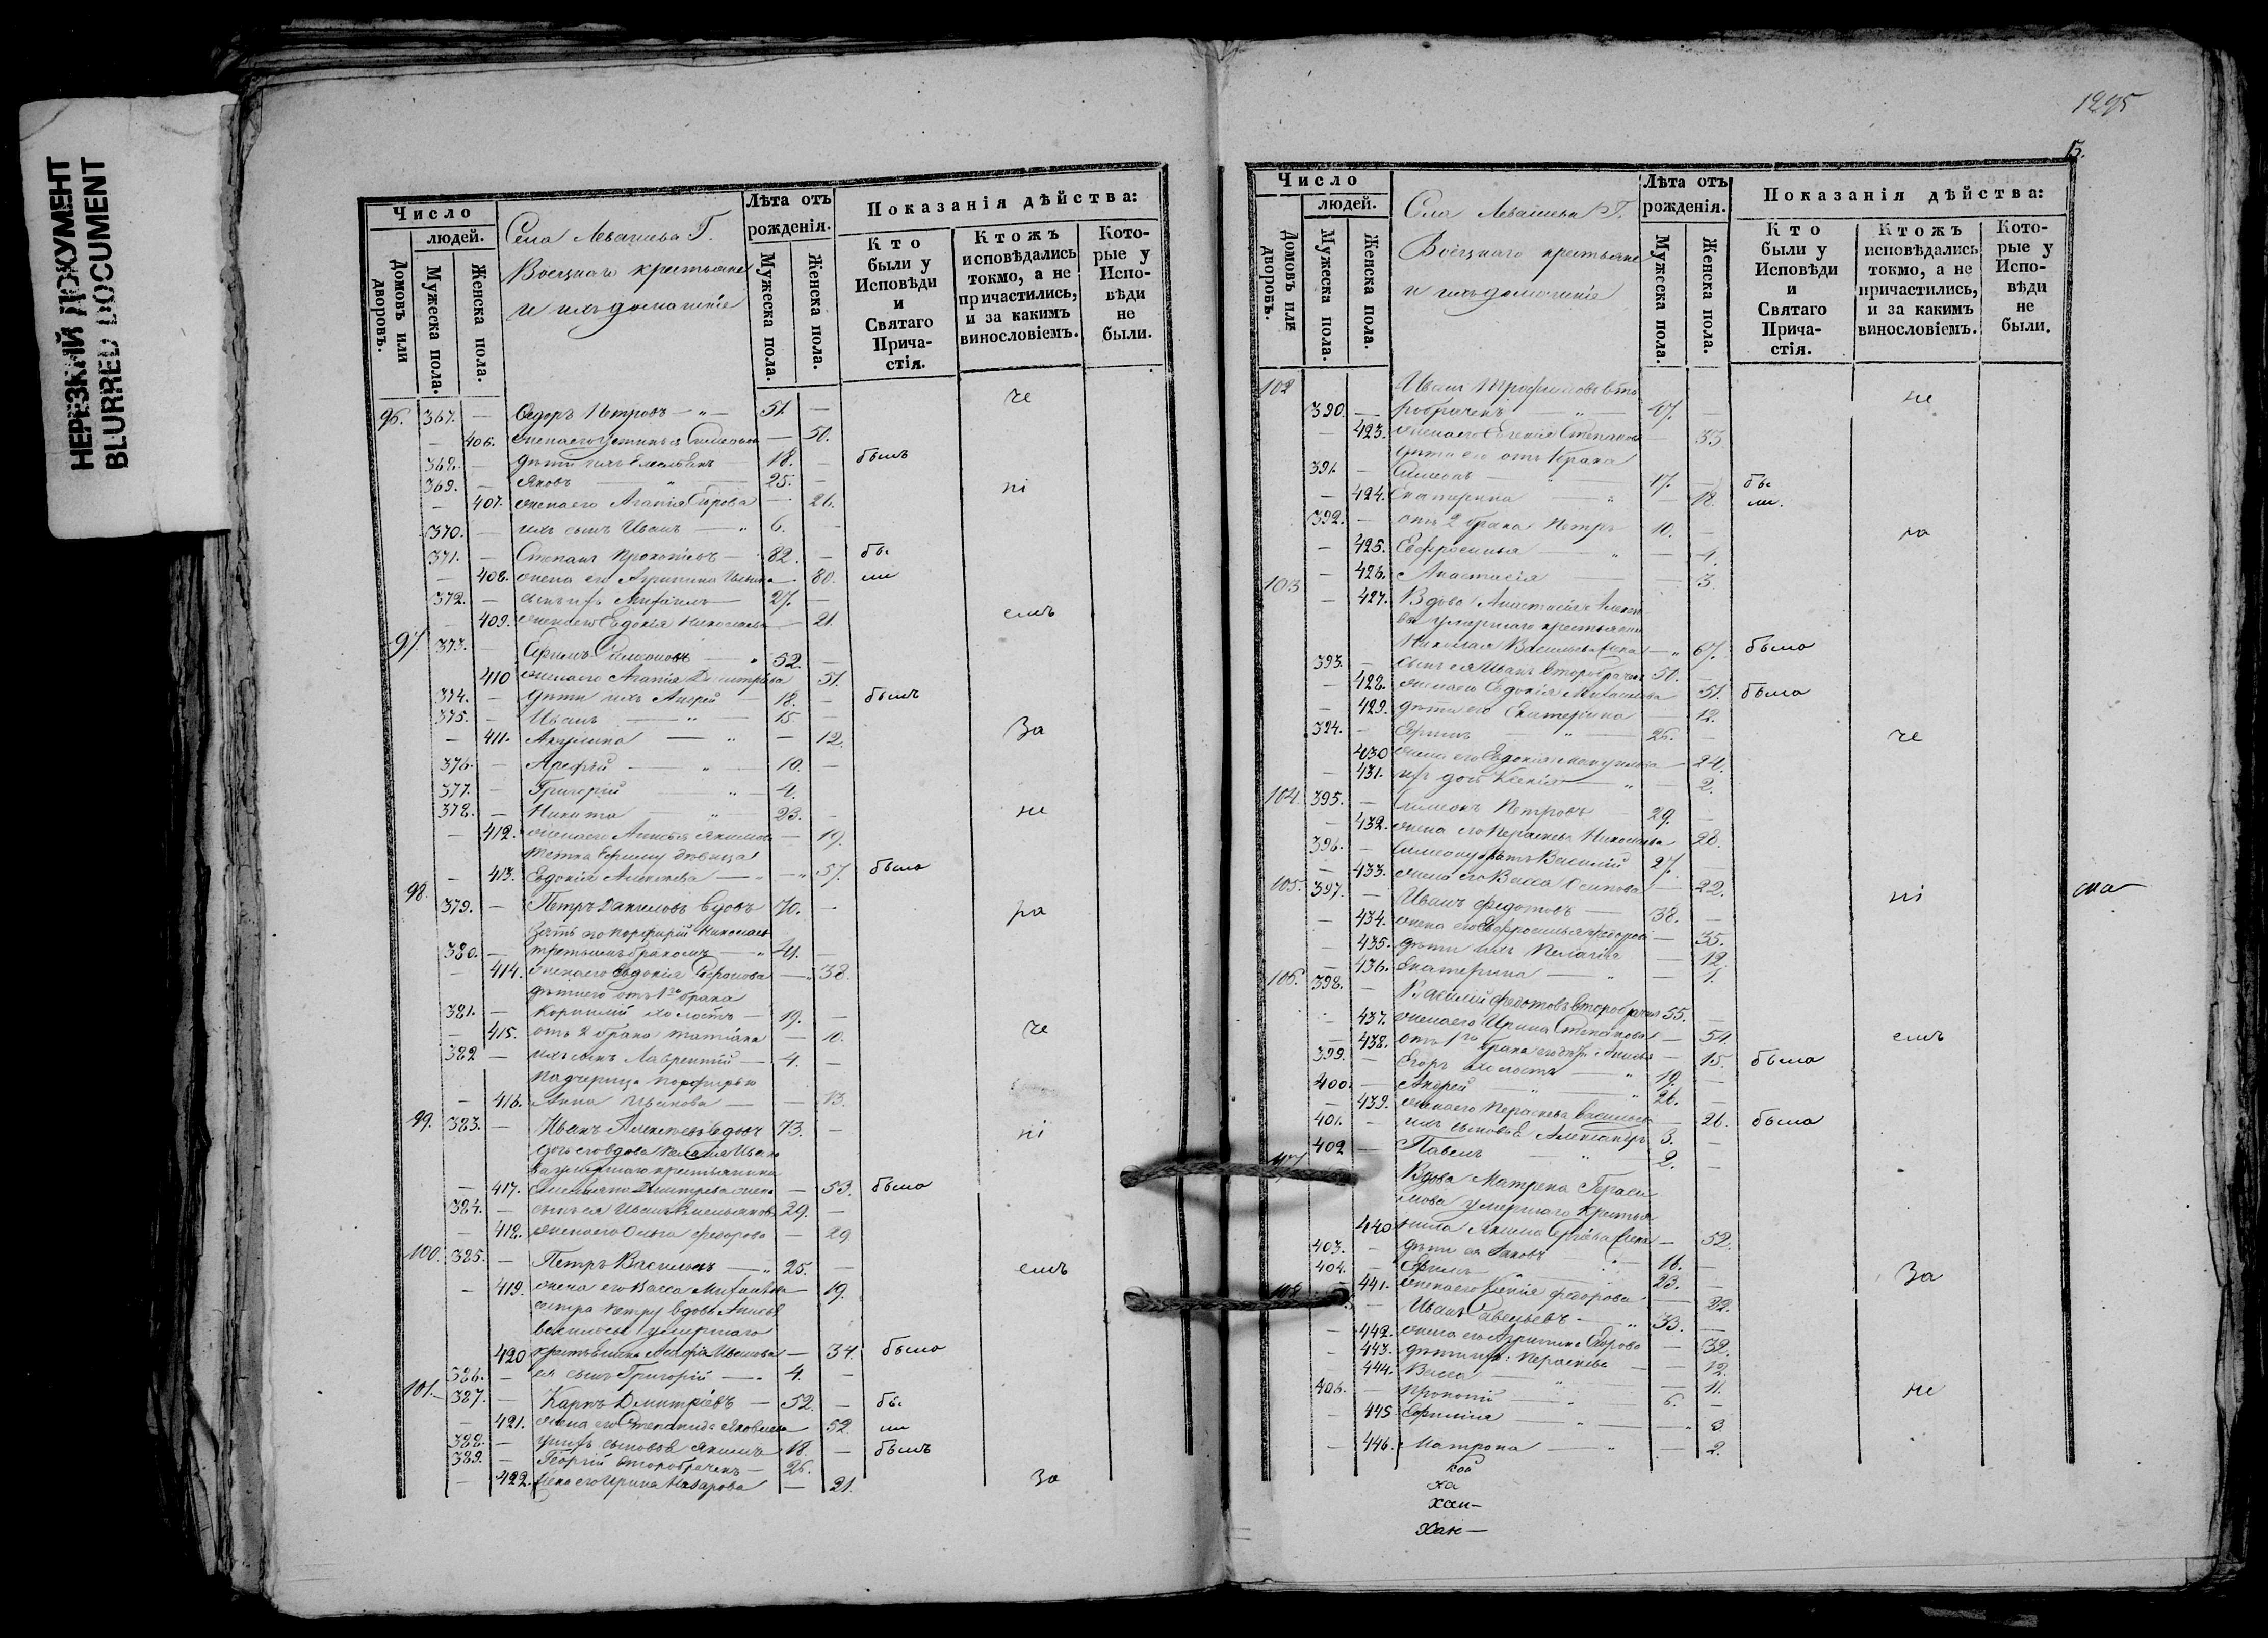 НЕРЕЗКИЙ ДОКУМЕНТ
BLURRED DOCUMENT
Число
людей.
Домовъ или дворовъ.
Мужеска пола.
Женска пола.
Села Левашева Г.
крестьяне
и ихъ домашніе
Лѣта отъ рожденія.
Мужеска пола.
Женска пола.
Показанія дѣйства:
Кто были у Исповѣди и Святаго Причастія.
Ктожъ исповѣдались токмо, а не причастились, и за какимъ винословіемъ.
Которые у Исповѣди не были.
96. 367. — Ѳедоръ Петровъ — 51. —
— 406. жена его Симеонова — 50.
368. — дѣти ихъ — 18. — былъ
369. — Яковъ — 25. —
— 407. жена его Агапія — 26.
370. — ихъ сынъ Иванъ — 6. —
371. — Степанъ Прокопіевъ — 82. — бы
— 408. жена его — 80. ли
372. — Михаилъ — 27. —
— 409. жена его Евдокія Николаева — 21.
97. 373. — Ефимъ Симеоновъ — 52. —
410 жена его Агапія Димитріева 51.
374. — дѣти ихъ Андрей — 18. — былъ
375. — Иванъ — 15 —
— 411. Акулина — 12.
376. — Арефій — 10. —
377. — Григорій — 4.
378. — Никита — 23. —
— 412. жена его Якимова — 19.
тетка Ефиму дѣвица
— 413. Евдокія Алексѣева — 57. была
98. 379. — Петръ Даниловъ вдовъ 70. —
зять его Порфирій Николаевъ
380. — третьимъ бракомъ — 41. —
— 414. жена его Евдокія — 38.
дѣти его отъ 1го брака
381. — Корнилій холостъ — 19. —
— 415. отъ 2 брака Татіана — 10.
382 — ихъ сынъ Лаврентій — 4. —
Падчерица Порфирью
— 416. Анна Иванова — 13.
99. 383. — Иванъ Алексѣевъ вдовъ 73. —
дочь его вдова Пелагія Иванова
умершаго крестьянина
— 417. Емельяна Димитріева жена — 53. была
384. — сынъ ея Иванъ Емельяновъ 29. —
— 418. жена его Ольга Федорова — 29
100. 385. — Петръ Васильевъ — 25. —
— 419. жена его Васса Михайлова — 19.
сестра Петру вдова Анисья
Васильева умершаго
420 крестьянина Иванова — 34. была
386. — ея сынъ Григорій — 4. —
101. 387. — Карпъ Димитріевъ — 52. — бы
— 421. жена его Степанида Яковлева 52 ли
388. — у нихъ сыновья Якимъ 18. — былъ
389. — Георгій второбраченъ — 26.
— 422. жена его Ирина Назарова — 21.
че
ні
емъ
За
не
ра
че
ні
емъ
За
1295
13.
Число
людей.
Домовъ или дворовъ.
Мужеска пола.
Женска пола.
Села Левашева Г.
крестьяне
и ихъ домашніе
Лѣта отъ рожденія.
Мужеска пола.
Женска пола.
Показанія дѣйства:
Кто были у Исповѣди и Святаго Причастія.
Ктожъ исповѣдались токмо, а не причастились, и за какимъ винословіемъ.
Которые у Исповѣди не были.
102 Иванъ Трофимовъ вто
390. — робраченъ — 47. —
— 423. жена его Евгенія Степанова — 33
дѣти его отъ 1 брака
391. — Симеонъ — 17. — бы
— 424. Екатерина — 18. ли.
392. — отъ 2 брака Петръ 10. —
— 425. Евфросинья — 4.
— 426. Анастасія — 3
103 — 427. Вдова Анастасія
умершаго крестьянина
Николая Васильева жена — 67. была
393. — сынъ ея Иванъ второбраченъ 51. —
— 428. жена его Евдокія Михайлова 51. была
— 429. дѣти его Екатерина — 12.
394. — Ефимъ — 26. —
430 жена его Евдокія — 24.
— 431. ихъ дочь Ксенія — 2.
104 395. — Симеонъ Петровъ 29. —
— 432. жена его Параскева Николаева 28.
396. — Симеону братъ Василій 27. —
— 433. жена его Васса Осипова — 22.
105. 397. — Иванъ Федотовъ — 38. —
— 434. жена его Евфросинья — 35.
— 435. дѣти ихъ Пелагія — 12.
— 436. Екатерина — 1.
106. 398. — Василій Федотовъ второбраченъ 55. —
— 437. жена его Ирина Степанова — 54.
— 438. отъ 1го брака его дочь Анисья — 15. была
399. — Егоръ холостъ — 19. —
400. — Андрей — 26. —
— 439. жена его Параскева Васильева — 26. была
401. — ихъ сыновья Александръ 3. —
402 — Павелъ — 2. —
107 Вдова Матрена Гераси
мова умершаго крестья
440 нина Якима Сергѣева жена — 52.
403. — дѣти ея Яковъ — 16. —
404. — Ефимъ — 23. —
— 441. жена его Ксенія Федорова — 22.
108 — Иванъ Савельевъ — 33. —
— 442. жена его — 32.
— 443. дѣти ихъ: Параскева — 12.
— 444. Васса — 11.
406. — Прокопій — 6. —
— 445 Ефимія — 3
— 446. Матрона — 2.
не
ра
че
ні
емъ
За
не
ха
хан—
Хан—